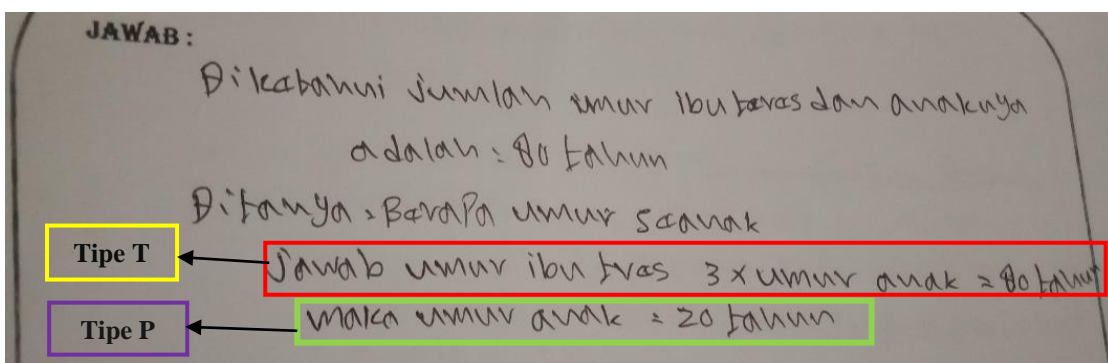 JAWAB :
Diketahui jumlah umur ibu teras dan anaknya
adalah : 80 tahun
Ditanya : Berapa umur seanak
Tipe T
Jawab umur ibu tras 3 x umur anak = 80 tahun
Tipe P
maka umur anak = 20 tahun